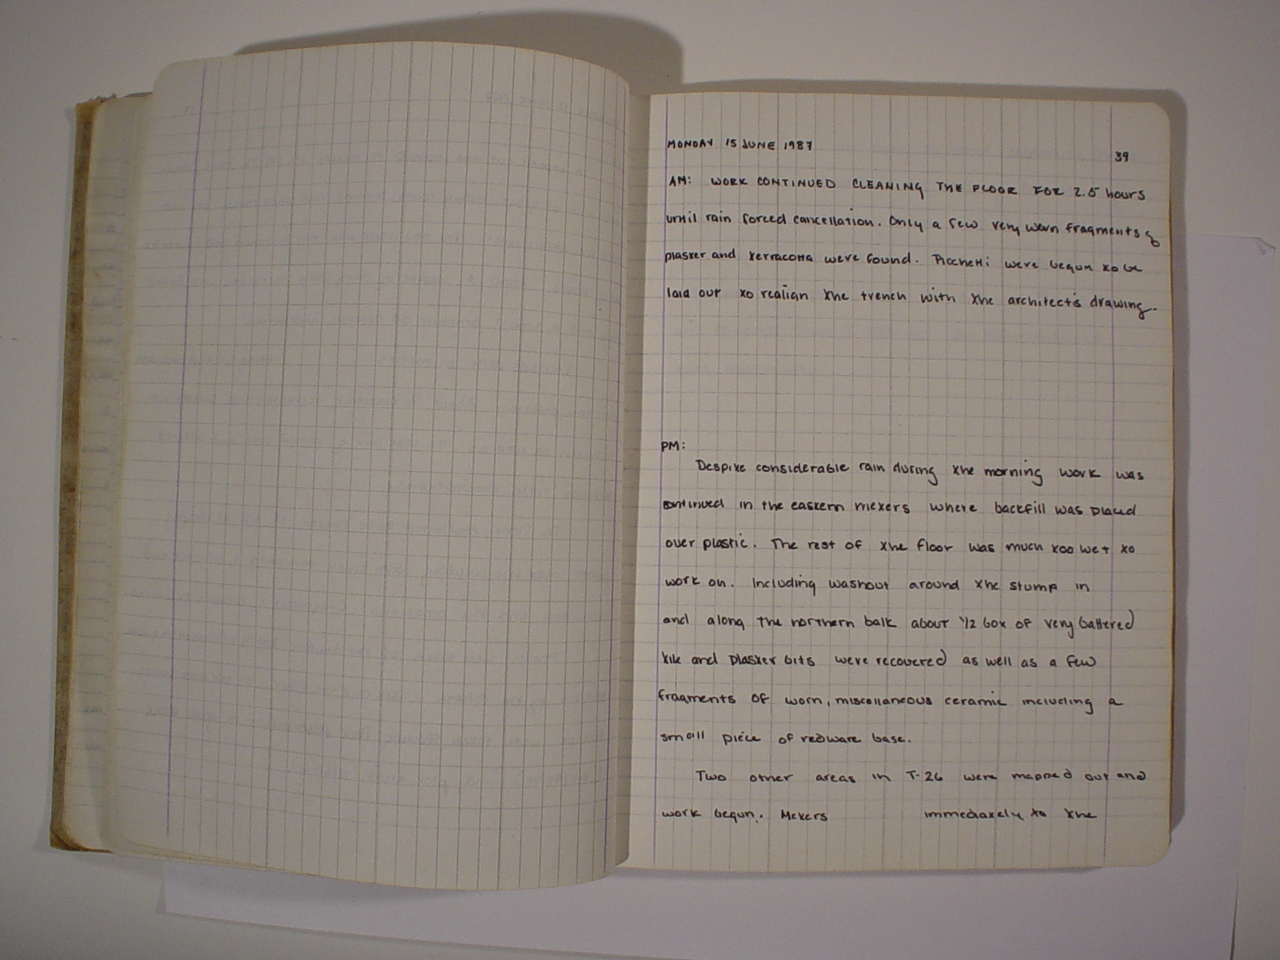 MONDAY 15 JUNE 1987
39
AM: WORK CONTINUED CLEANING THE FLOOR FOR 2.5 hours
until rain forced cancellation. Only a few very worn fragments of
plaster and terracotta were found. Picchetti were begun to be
laid out to realign the trench with the architect's drawing.
PM:
Despite considerable rain during the morning work was
continued in the eastern meters where backfill was placed
over plastic. The rest of the floor was much too wet to
work on. Including washout around the stump in
and along the northern balk about 1/2 box of very battered
tile and plaster bits were recovered as well as a few
fragments of worn, miscellaneous ceramic including a
small piece of redware base.
Two other areas in T-26 were mapped out and
work begun. Meters immediately to the